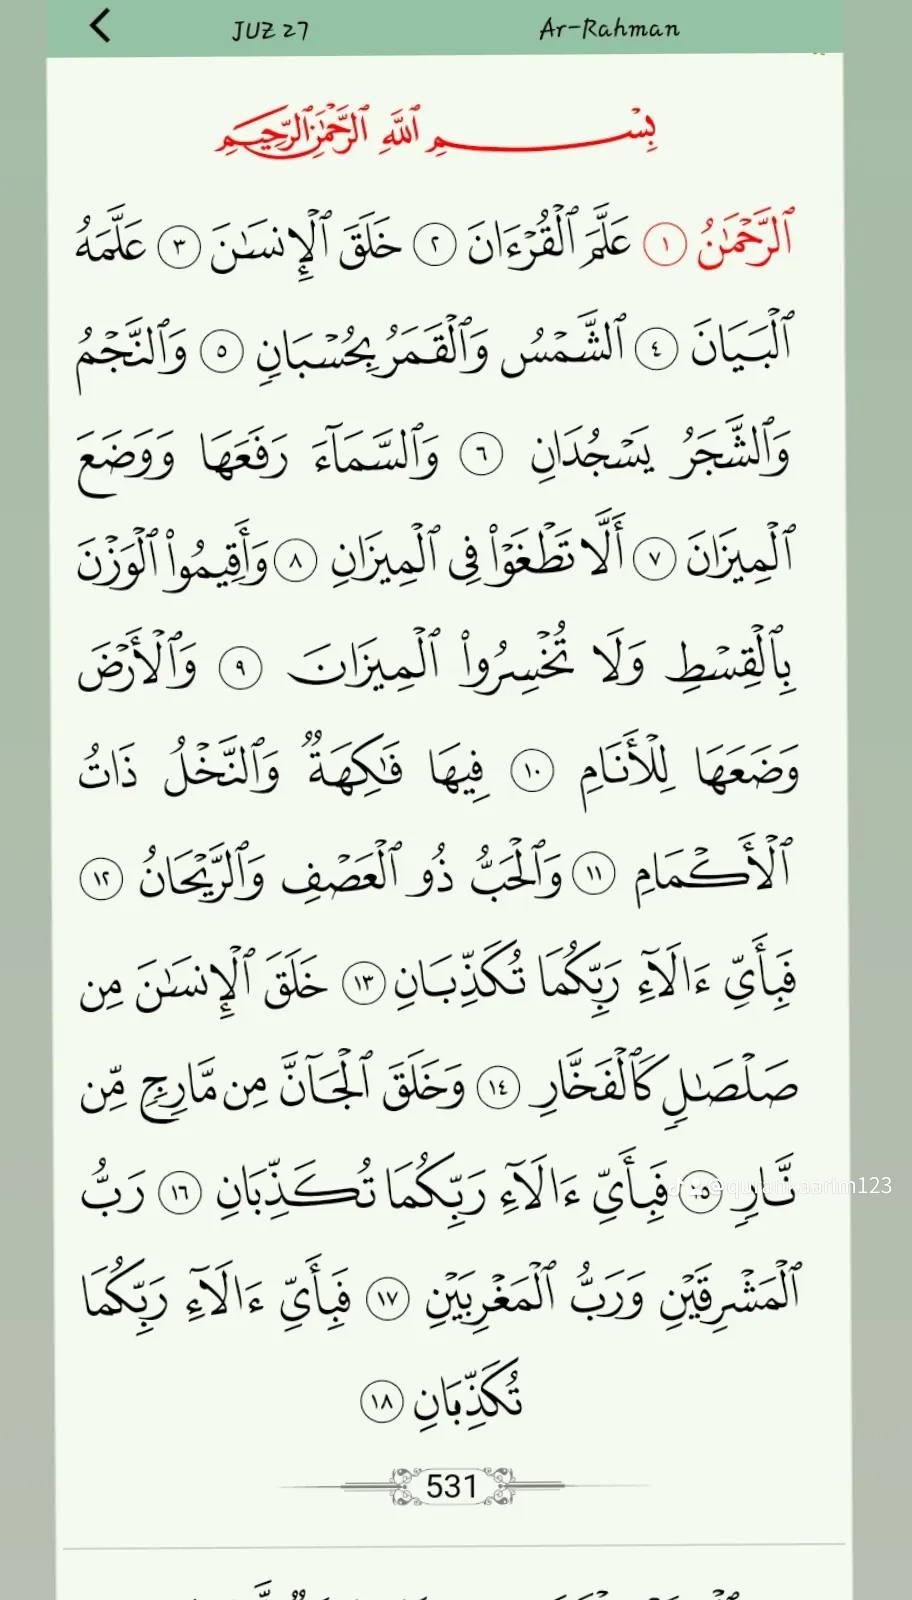 JUZ 27 Ar-Rahman
بِسْمِ ٱللَّهِ ٱلرَّحْمَٰنِ ٱلرَّحِيمِ
ٱلرَّحْمَٰنُ ١ عَلَّمَ ٱلْقُرْءَانَ ٢ خَلَقَ ٱلْإِنسَٰنَ ٣ عَلَّمَهُ
ٱلْبَيَانَ ٤ ٱلشَّمْسُ وَٱلْقَمَرُ بِحُسْبَانٍ ٥ وَٱلنَّجْمُ
وَٱلشَّجَرُ يَسْجُدَانِ ٦ وَٱلسَّمَآءَ رَفَعَهَا وَوَضَعَ
ٱلْمِيزَانَ ٧ أَلَّا تَطْغَوْا۟ فِى ٱلْمِيزَانِ ٨ وَأَقِيمُوا۟ ٱلْوَزْنَ
بِٱلْقِسْطِ وَلَا تُخْسِرُوا۟ ٱلْمِيزَانَ ٩ وَٱلْأَرْضَ
وَضَعَهَا لِلْأَنَامِ ١٠ فِيهَا فَٰكِهَةٌ وَٱلنَّخْلُ ذَاتُ
ٱلْأَكْمَامِ ١١ وَٱلْحَبُّ ذُو ٱلْعَصْفِ وَٱلرَّيْحَانُ ١٢
فَبِأَىِّ ءَالَآءِ رَبِّكُمَا تُكَذِّبَانِ ١٣ خَلَقَ ٱلْإِنسَٰنَ مِن
صَلْصَٰلٍ كَٱلْفَخَّارِ ١٤ وَخَلَقَ ٱلْجَآنَّ مِن مَّارِجٍ مِّن
نَّارٍ ١٥ فَبِأَىِّ ءَالَآءِ رَبِّكُمَا تُكَذِّبَانِ ١٦ رَبُّ
ٱلْمَشْرِقَيْنِ وَرَبُّ ٱلْمَغْرِبَيْنِ ١٧ فَبِأَىِّ ءَالَآءِ رَبِّكُمَا
تُكَذِّبَانِ ١٨
531